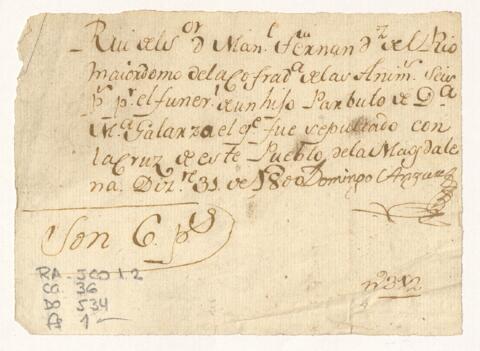 Rvi del Sor d Manl Fernandz del Rio
maiordomo de la Cofrada de las Anims Seis
ps pr el funerl de un hijo Parbulo de Da
Ma Galarza el qe fue sepultado con
la Cruz de este Pueblo de la Magdale
na. Dizre 31 de 1800 Domingo
Son 6. ps
RA.
C. 36
D 534
1
no 312